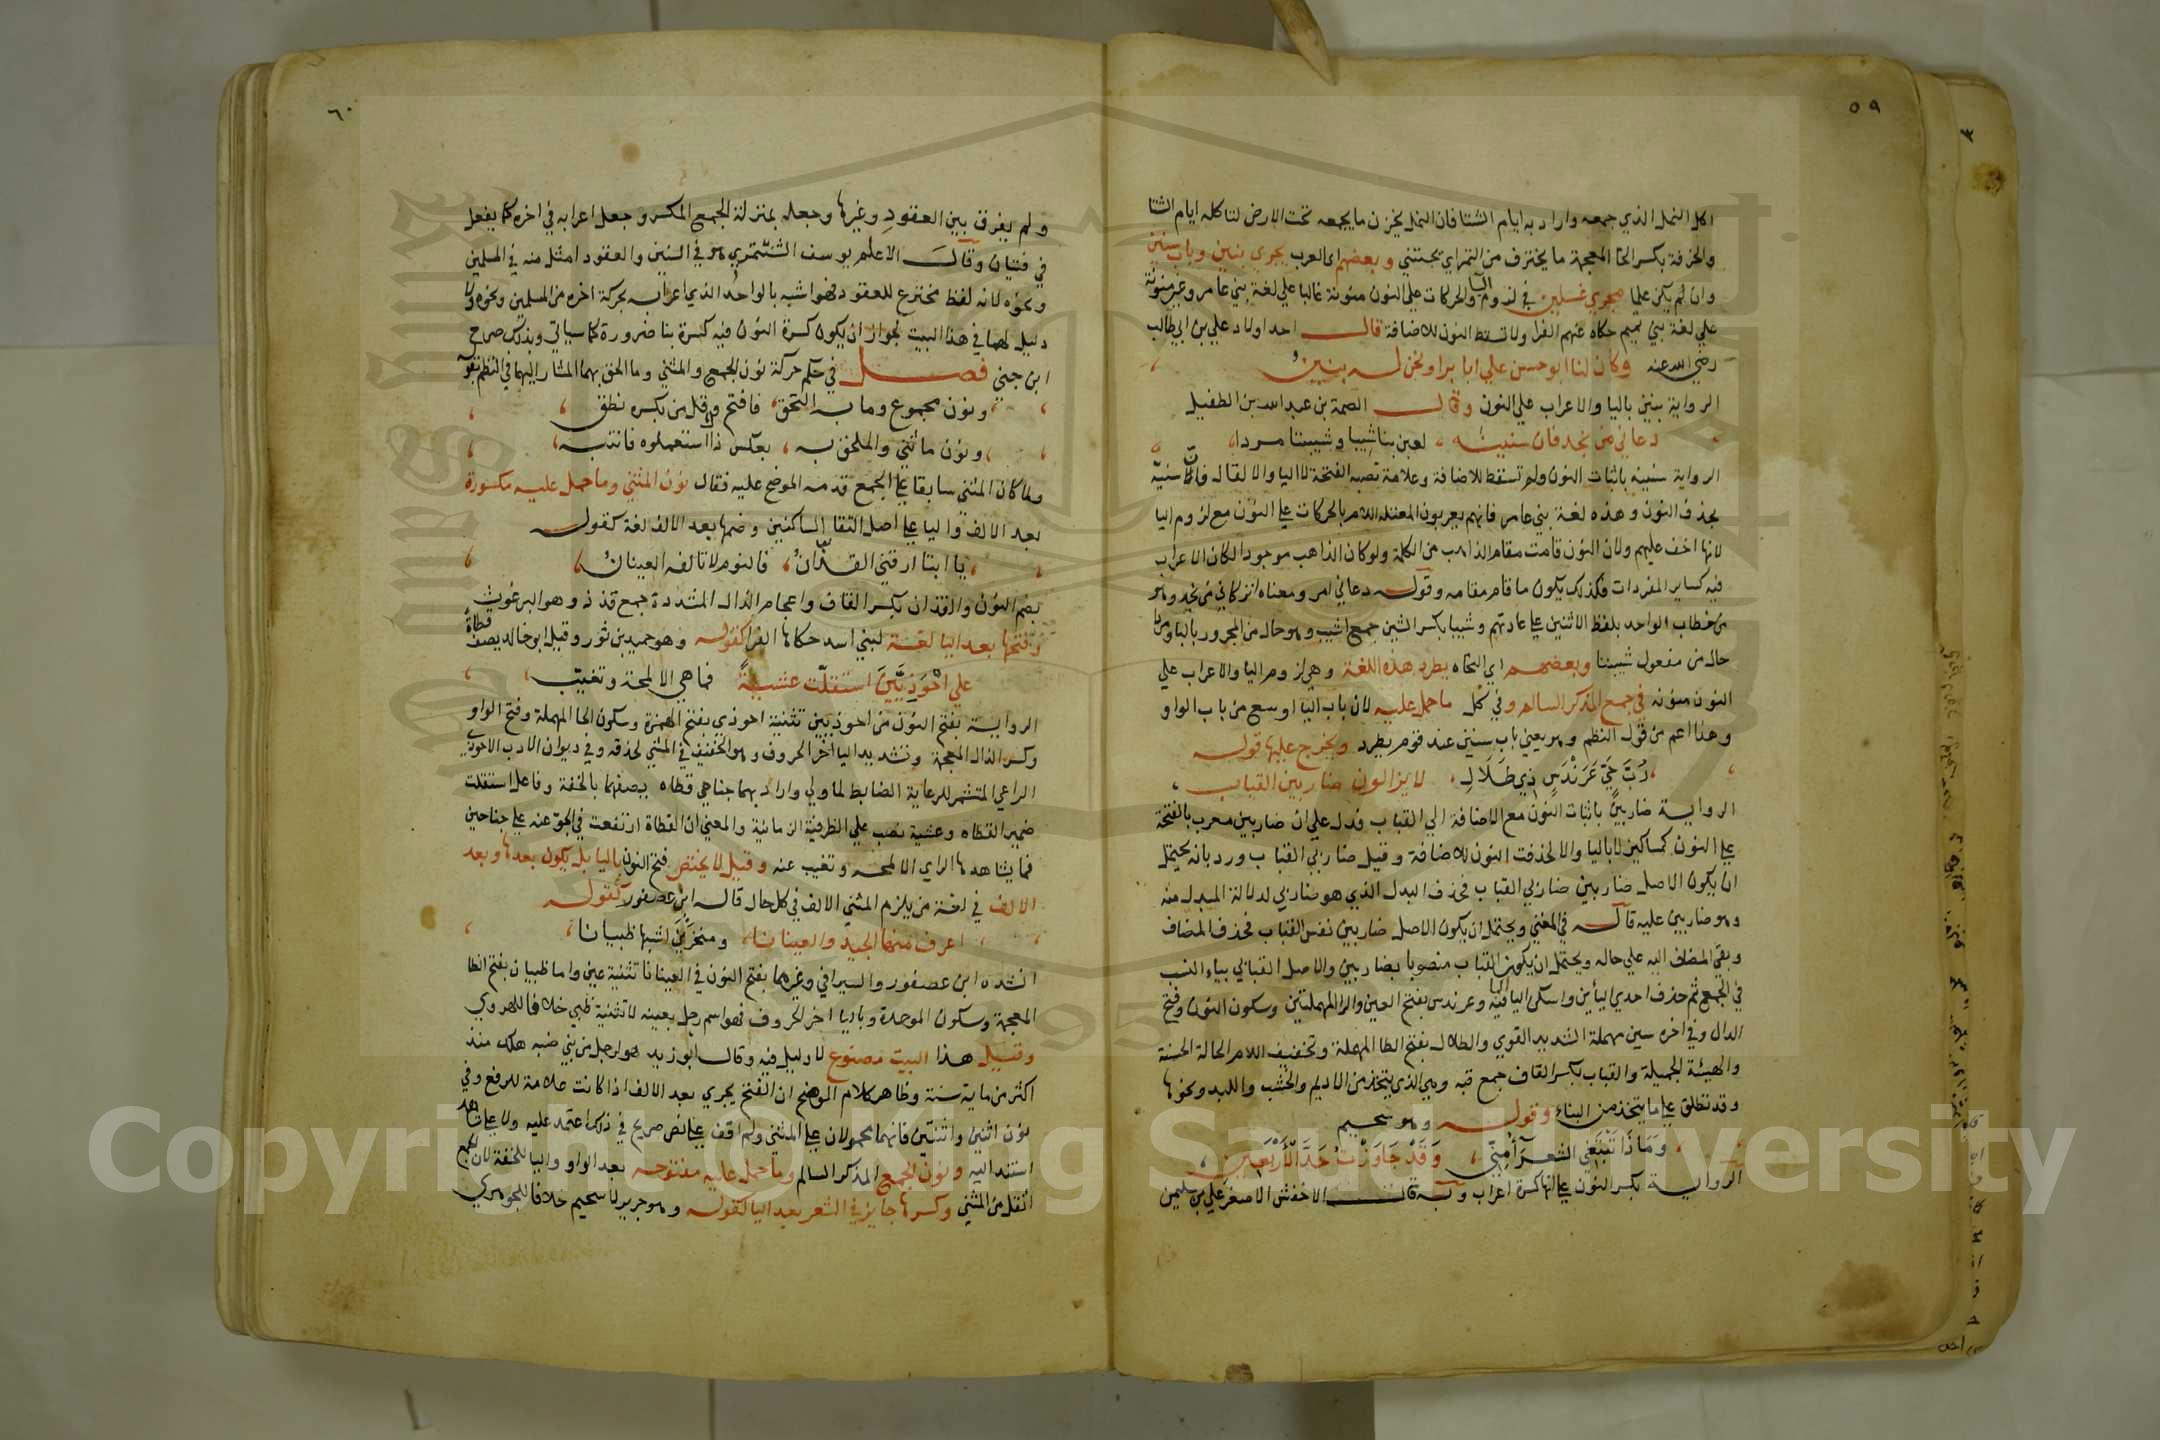 ٥٩
اكل النمل الذي جمعه واراد به ايام الشتا فان النمل يخزن ما يجمعه تحت الارض لتاكله ايام الشتا
والخرفة بكسر الخا المعجمة ما يخترف من التمر اي يجتنى وبعضهم اي العرب يجري بنين وباب سنين
وان لم يكن علما مجري غسلين في لزوم اليا والحركات علي النون منونة غالبا علي لغة بني عامر وغير منونة
علي لغة بني تميم حكاه عنهم الفرا ولا تسقط النون للاضافة قال احد اولاد علي بن ابي طالب
رضي الله عنه وكان لنا ابو حسن علي ابا برا ونحن له بنين
الرواية بنين باليا والاعراب علي النون وقال الصمة بن عبد الله بن الطفيل
دعاني من نجد فان سنينه لعبن بنا شيبا وشيبننا مردا
الرواية سنينه باثبات النون ولم تسقط للاضافة وعلامة نصبه الفتحة لا اليا والا لقال فان سنيه
بحذف النون وهذه لغة بني عامر فانهم يعربون المعتل اللام بالحركات علي النون مع لزوم اليا
لانها اخف عليهم ولان النون قامت مقام الذاهب من الكلمة ولو كان الذاهب موجودا لكان الاعراب
فيه كساير المفردات فكذلك يكون ما قام مقامه وقوله دعاني امر ومعناه اتركاني من نجد وهو
من خطاب الواحد بلفظ الاثنين علي عادتهم وشيبا بكسر الشين جمع اشيب وهو حال من المجرور بالبا ومردا
حال من مفعول شيبننا وبعضهم اي النحاه يطرد هذه اللغة وهي لزوم اليا والاعراب علي
النون منونه في جمع المذكر السالم وفي كل ما حمل عليه لان باب اليا اوسع من باب الواو
وهذا اعم من قول النظم وهو يعني باب سنين عند قوم يطرد ويخرج عليها قوله
رُبَّ حَيٍّ عَرَنْدَسٍ ذِي طَلَالٍ لا يزالون ضاربين القباب
الرواية ضاربين باثبات النون مع الاضافة الي القباب فدل علي ان ضاربين معرب بالفتحة
علي النون كمساكين لا باليا والا لحذفت النون للاضافة وقيل ضاربي القباب ورد بانه يحتمل
ان يكون الاصل ضاربين ضاربي القباب فحذف البدل الذي هو ضاربي لدلالة المبدل منه
وهو ضاربين عليه قاله في المغني ويحتمل ان يكون الاصل ضاربين نفس القباب فحذف المضاف
وبقي المضاف اليه علي حاله ويحتمل ان يكون القباب منصوبا بضاربين والاصل القبابي بياء النسب
في الجمع ثم حذف احدي اليأين واسكن اليا الباقية وعرندس بفتح العين والرا المهملتين وسكون النون وفتح
الدال وفي اخره سين مهملة الشديد القوي والطلال بفتح الطا المهملة وتخفيف اللام الحالة الحسنة
والهيئة الجميلة والقباب بكسر القاف جمع قبه وهي الذي يتخذ من الاديم والخشب واللبد ونحوها
وقد تطلق علي ما يتخذ من البناء وقوله وهو سحيم
وَمَاذَا تَبْتَغِي الشعرَآ مِنِّي وَقَدْ جَاوَزْتُ حَدَّ الأَرْبَعِينِ
الرواية بكسر النون علي انها كسرة اعراب وبه قال الاخفش الاصغر علي بن سليمن
٦٠
ولم يفرق بين العقودِ وغيرها وجعله بمنزلة الجمع المكسر وجعل اعرابه في اخره كما يفعل
في فتيان وقال الاعلم يوسف الشنتمري هو في السنين والعقود امثل منه في المسلمين
ونحوه لانه لفظ مخترع للعقود فهو اشبه بالواحد الذي اعرابه بحركة اخره من المسلمين ونحوه ولا
دليل لهما في هذا البيت لجواز ان يكون كسرة النون فيه كسرة بنا ضرورة كما سياتي وبذلك صرح
ابن جني فصل في حكم حركة نون الجمع والمثني وما الحق بهما المشار اليهما في النظم بقوله
ونون مجموع وما به التحق فافتح وقل من بكسره نطق
ونون ما ثني والملحق به بعكس ذا استعملوه فانتبه
ولما كان المثني سابقا علي الجمع قدمه الموضح عليه فقال نون المثني وما حمل عليه مكسورة
بعد الالف واليا علي اصل التقا الساكنين وضمها بعد الالف لغة كقوله
يا ابتا ارقني القذّانُ فالنوم لا تالفه العينانُ
بضم النون والقذان بكسر القاف واعجام الذال المشددة جمع قذذ وهو البرغوث
وفتحها بعد اليا لغة لبني اسد حكاها الفرا كقوله وهو حميد بن ثور وقيل ابو خالد يصف قطاة
علي أحْوَذِيَّيْنَ استقلّت عشيةً فما هي الا لمحة وتغيب
الرواية بفتح النون من احوذيين تثنية احوذي بفتح الهمزة وسكون الحا المهملة وفتح الواو
وكسر الذال المعجمة وتشديد اليا اخر الحروف وهو الخفيف في المشي لحذقه وفي ديوان الادب الاحوذي
الراعي المتشمر للرعاية الضابط لما ولي واراد بهما جناحي قطاه يصفهما بالخفة وفاعل استقلت
ضمير القطاه وعشية نصب علي الظرفية الزمانية والمعني ان القطاة ارتفعت في الجو عشية علي جناحين
فما يشاهدها الراي الا لمحه وتغيب عنه وقيل لا يختص فتح النون باليا بل يكون بعدها وبعد
الالف في لغة من يلزم المثني الالف في كل حال قاله ابن عصفور كقوله
اعرف منها الجيد والعينانا ومنخرين اشبها ظبيانا
انشده ابن عصفور والسيرافي وغيرهما بفتح النون في العينانا تثنية عين واما ظبيان بفتح الظا
المعجمة وسكون الموحدة وباليا اخر الحروف فهو اسم رجل بعينه لا تثنية ظبي خلافا للهروي
وقيل هذا البيت مصنوع لا دليل فيه وقال ابو زيد هو لرجل من بني ضبه هلك منذ
اكثر من ماية سنة وظاهر كلام الموضح ان الفتح يجري بعد الالف اذا كانت علامة للرفع وفي
نون اثنين واثنتين فانهما محمولان علي المثني ولم اقف علي نص صريح في ذلك اعتمد عليه ولا علي شاهد
استند اليه ونون الجمع المذكر السالم وما حمل عليه مفتوحه بعد الواو واليا للخفة لان الجمع
اثقل من المثني وكسرها جايز في الشعر بعد اليا كقوله وهو جرير لا سحيم خلافا للجوهري
Copyright © King Saud University